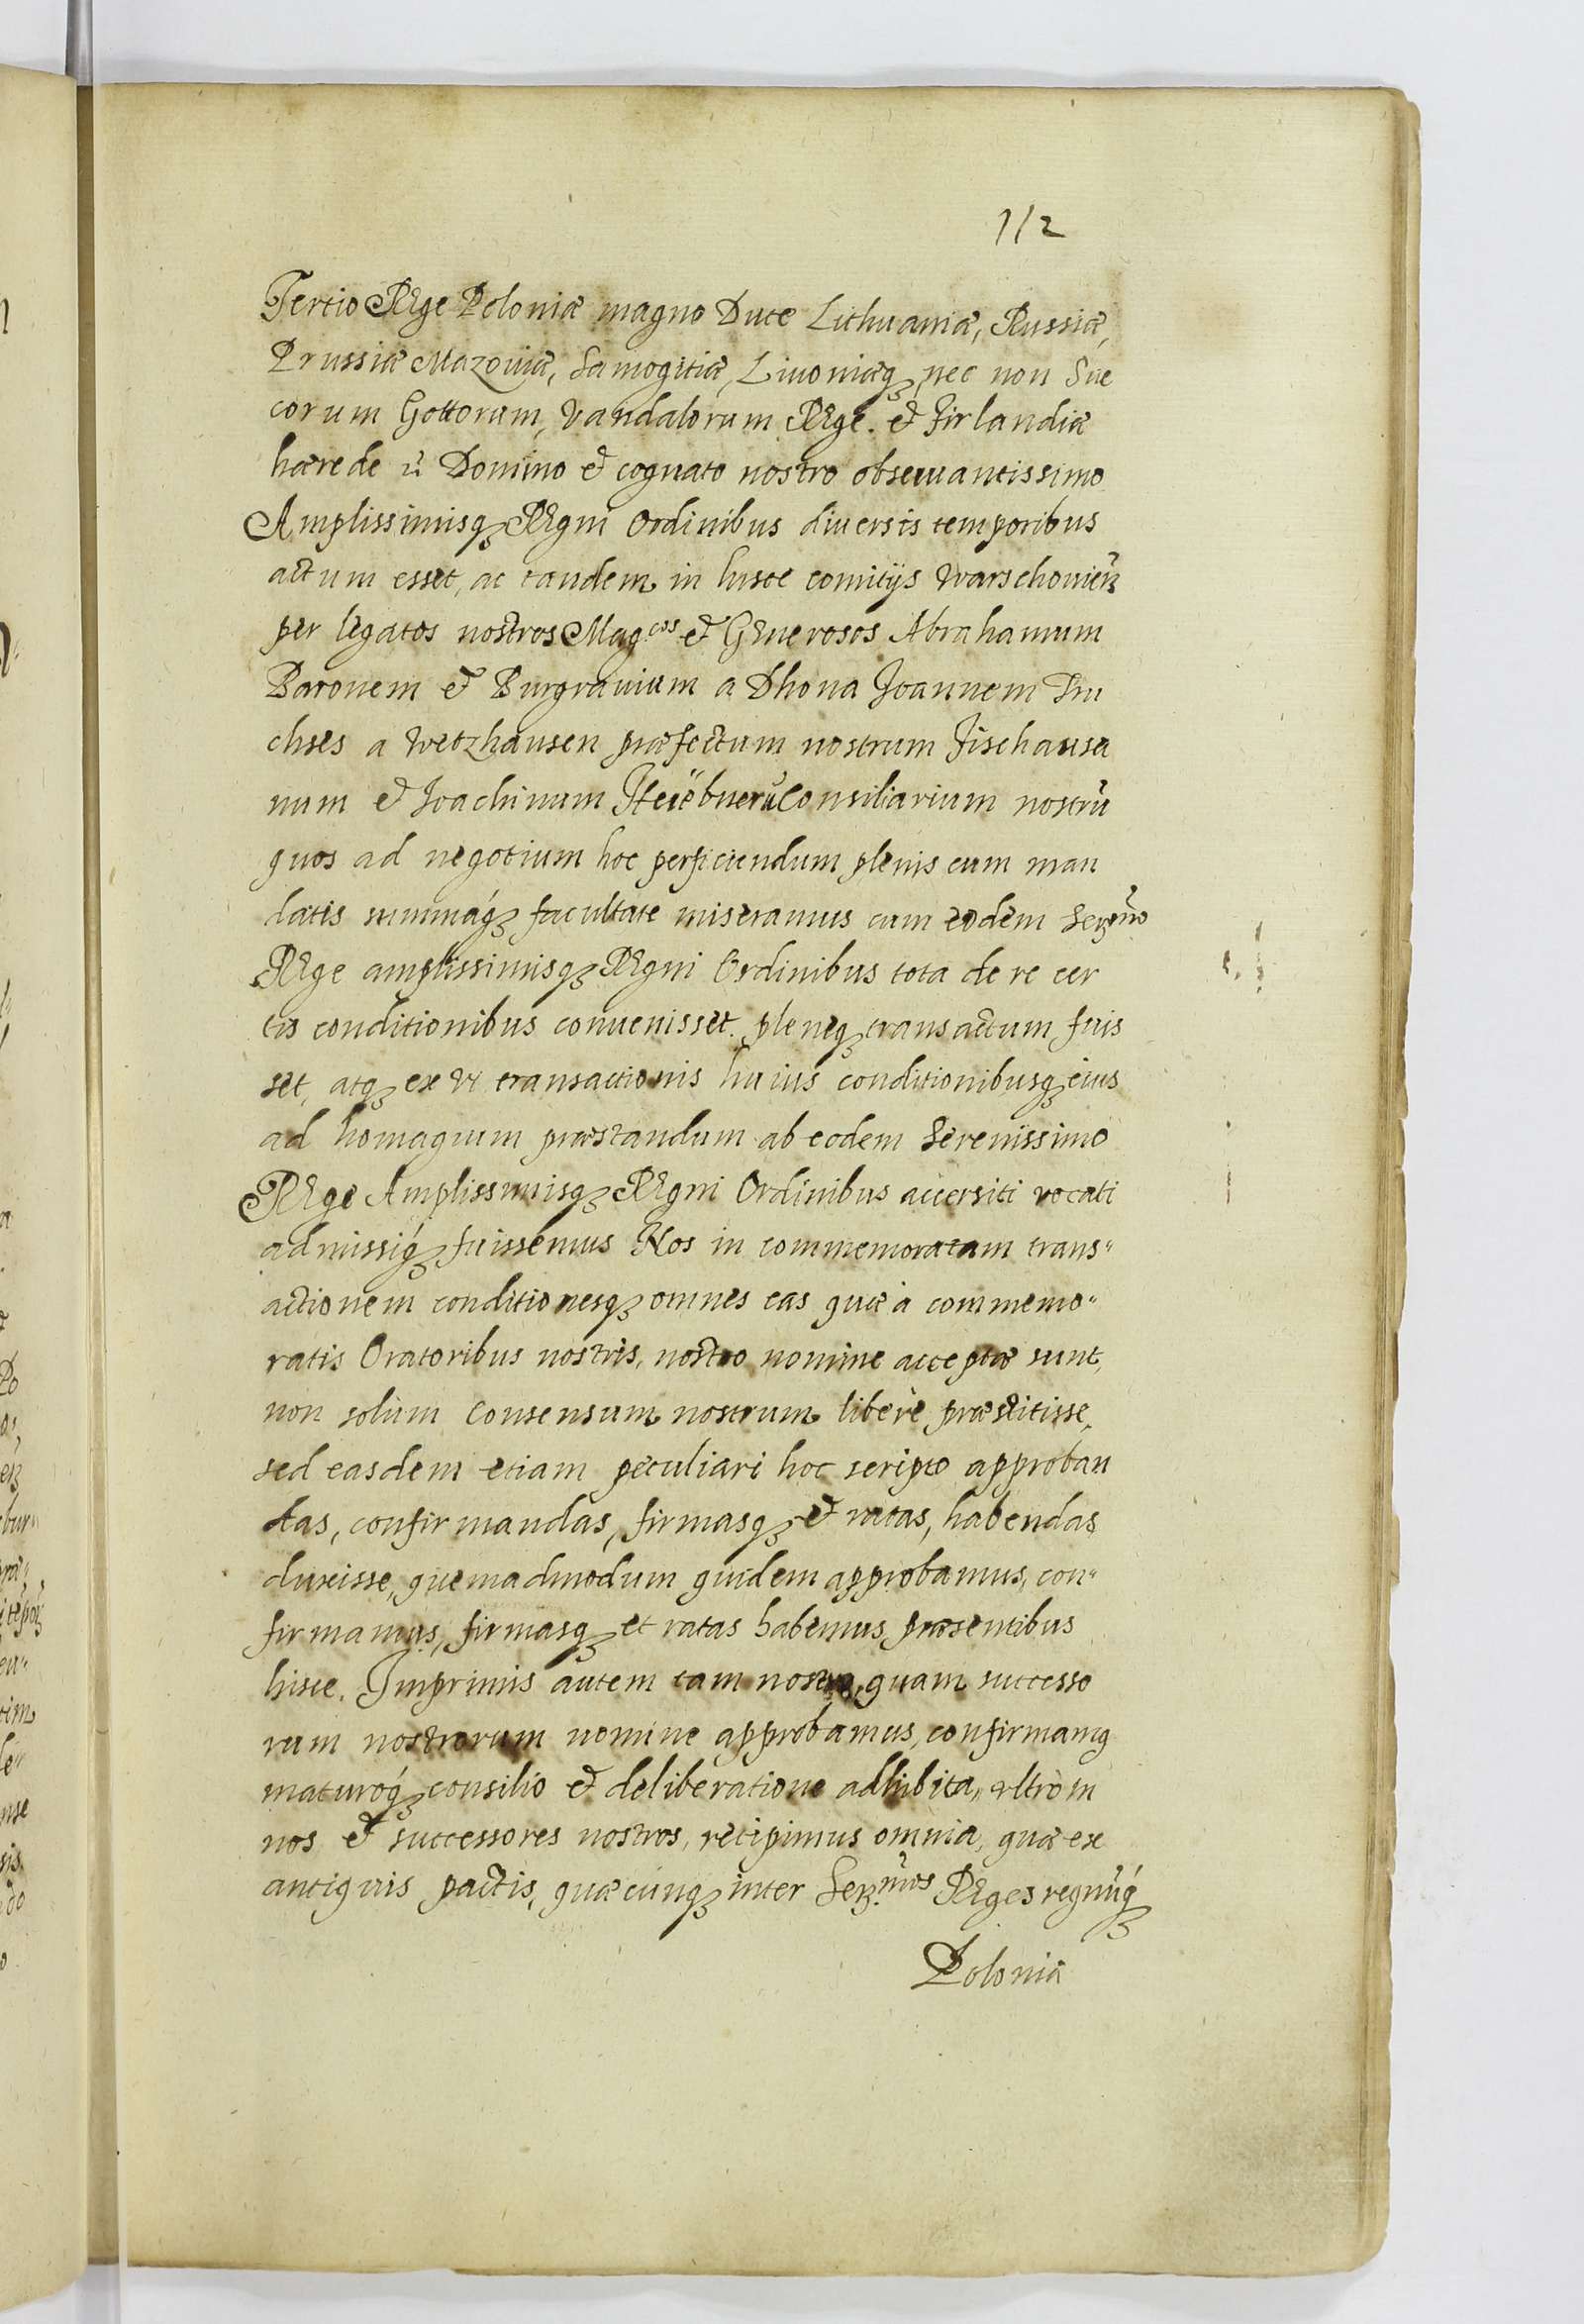 112
Tertio REge Poloniæ magno Duce Lithuaniæ, Russiæ,
Prussiæ Mazoviæ, Samogitiæ, Livoniæq₃ nec non Sue
corum Gottorum, Vandalorum REge. et Finlandiæ
hærede Domino et cognato nostro obseruantissimo
Amplissimisq₃ REgni Ordinibus diuersis temporibus
actum esset, ac tandem in hisce comitijs Warschouień
per legatos nostros Mag.cos et GEnerosos Abrahamum
Baronem et Burgrauium a Dhona Joannem Tru
chses a Wetzhausen præfectum nostrum Fischausa
num et Joachimum consiliarium nostrū
quos ad negotium hoc perficiendum plenis cum man
datis summáq₃ facultate miseramus cum eodem Serẽno
REge amplissimisq₃ REgni Ordinibus tota de re cer
tis conditionibus conuenisset. pleneq₃ transactum fuis
set, atq₃ ex vi transactionis huius conditionibusq₃ eius
ad homagium præstandum ab eodem Serenissimo
REge Amplissimisq₃ REgni Ordinibus accersiti vocati
admissiq́₃ fuissemus Nos in commemoratam trans"
actionem conditionesq₃ omnes eas quæ à commemo"
ratis Oratoribus nostris, nostro nomine acceptæ sunt,
non solum Consensum nostrum liberè præstitisse,
sed easdem etiam peculiari hoc scripto approban
das, confirmandas, firmasq₃ et ratas, habendas
duxisse, quemadmodum quidem approbamus, con"
firmamus, firmasq₃ et ratas habemus præsentibus
hisce. Imprimis autem tam nostro, quam successo
rum nostrorum nomine approbamus, confirmamq
maturoq́₃ consilio et deliberatione adhibita, vltro in
nos et successores nostros, recipimus omnia, quæ ex
antiquis pactis, quæcunq₃ inter Serẽmos REges regnũq́₃
Polonia